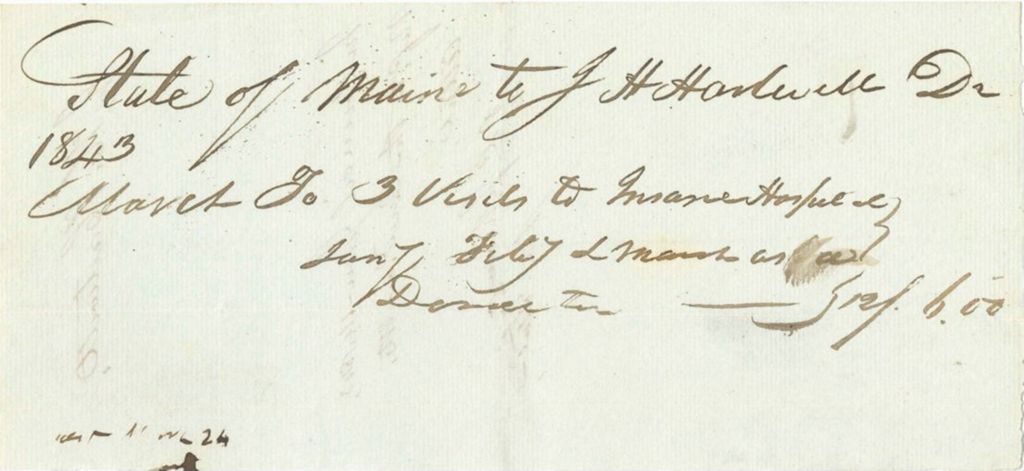 State of Maine to J H Hartwell Dr
1843
March To 3 Visits to Insane Hospital
Jany Feby & March as a
Director 12/. 6.00
24